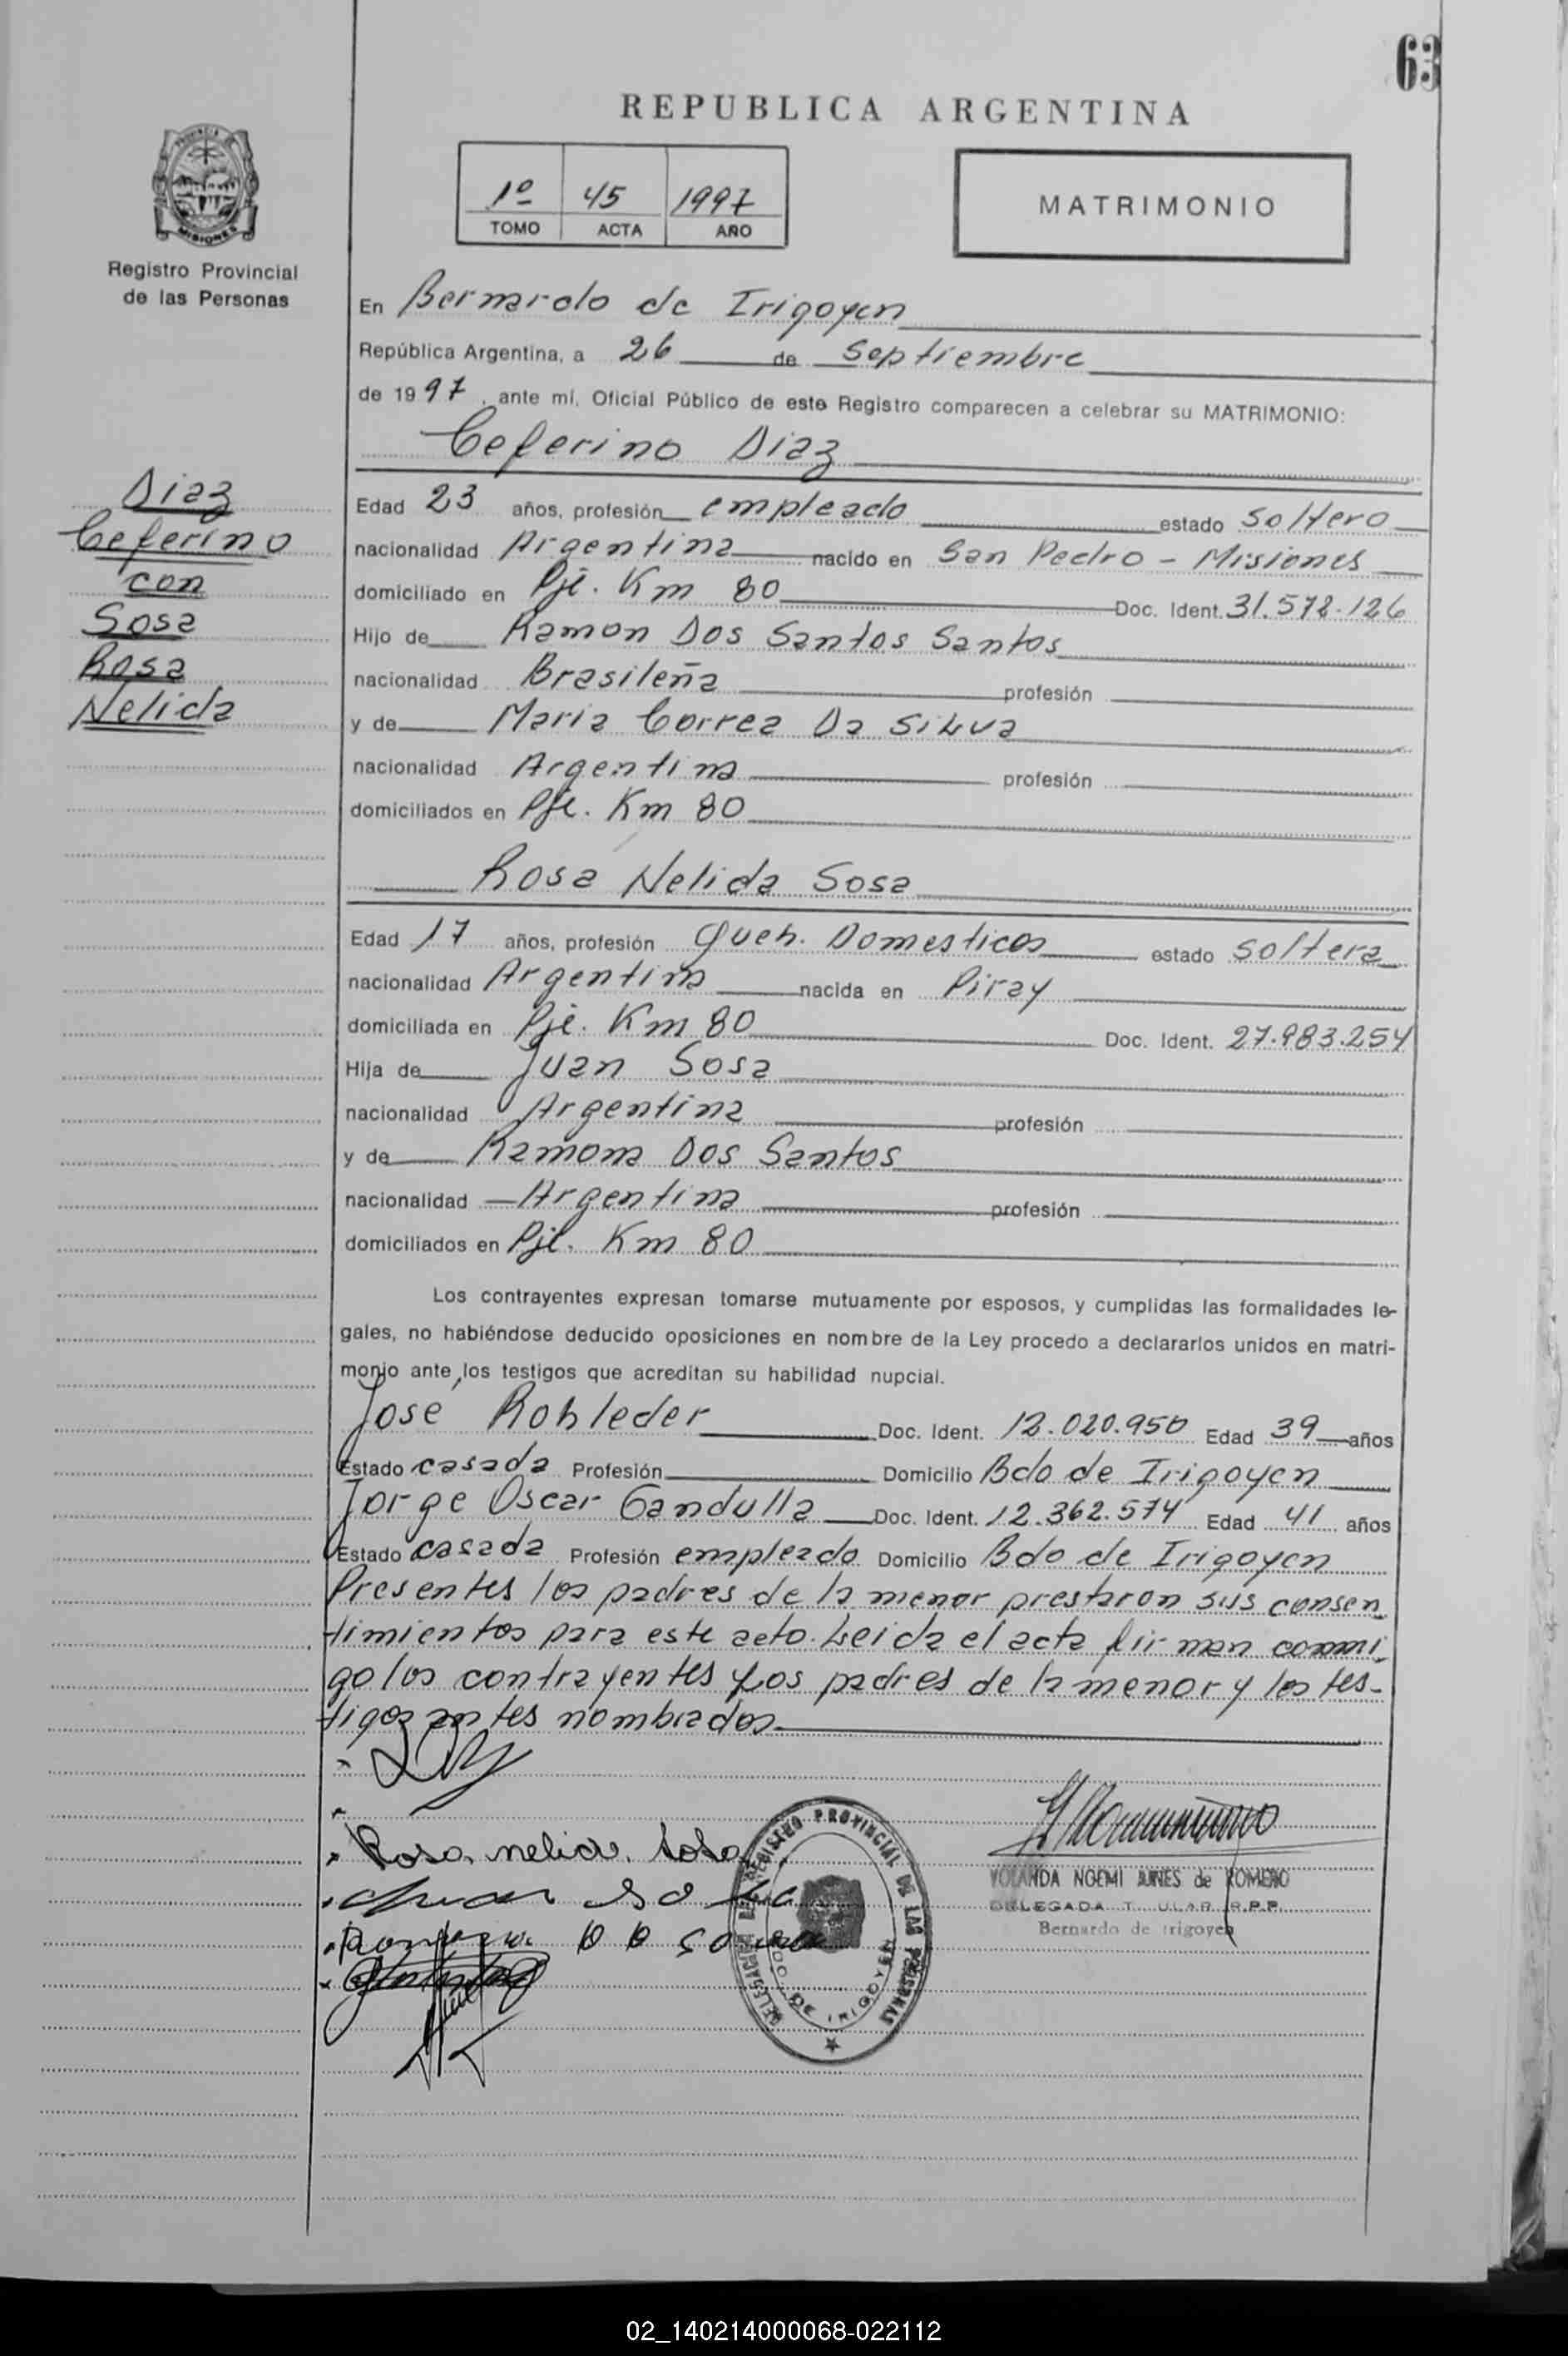 63
REPUBLICA ARGENTINA
1º 45 1997
TOMO ACTA AÑO
MATRIMONIO
MISIONES
Registro Provincial
de las Personas
En Bernardo de Irigoyen
República Argentina, a 26 de Septiembre
de 1997, ante mí, Oficial Público de este Registro comparecen a celebrar su MATRIMONIO:
Ceferino Diaz
Diaz
Ceferino
con
Sosa
Rosa
Nelida
Edad 23 años, profesión empleado estado soltero
nacionalidad Argentina nacido en San Pedro - Misiones
domiciliado en Pje. Km 80 Doc. Ident. 31.572.126
Hijo de Ramon Dos Santos Santos
nacionalidad Brasileña profesión
y de Maria Correa Da Silva
nacionalidad Argentina profesión
domiciliados en Pje. Km 80
Rosa Nelida Sosa
Edad 17 años, profesión Queh. Domesticos estado soltera
nacionalidad Argentina nacida en Piray
domiciliada en Pje. Km 80 Doc. Ident. 27.983.254
Hija de Juan Sosa
nacionalidad Argentina profesión
y de Ramona Dos Santos
nacionalidad Argentina profesión
domiciliados en Pje. Km 80
Los contrayentes expresan tomarse mutuamente por esposos, y cumplidas las formalidades le-
gales, no habiéndose deducido oposiciones en nombre de la Ley procedo a declararlos unidos en matri-
monio ante los testigos que acreditan su habilidad nupcial.
José Rohleder Doc. Ident. 12.020.950 Edad 39 años
Estado casada Profesión Domicilio Bdo de Irigoyen
Jorge Oscar Gandulla Doc. Ident. 12.362.574 Edad 41 años
Estado casada Profesión empleado Domicilio Bdo de Irigoyen
Presentes los padres de la menor prestaron sus consen
timientos para este acto. Leida el acta firman conmi-
go los contrayentes y los padres de la menor y los tes-
tigos antes nombrados.
Rosa nelida Sosa
Juan Sosa
DELEGACION DEL REGISTRO PROVINCIAL DE LAS PERSONAS
BDO. DE IRIGOYEN
YOLANDA NOEMI JUNES de ROMERO
DELEGADA TITULAR R.P.P.
Bernardo de Irigoyen
02_140214000068-022112